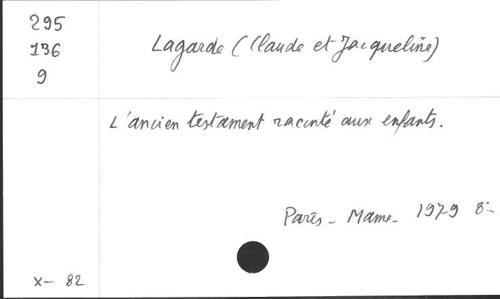 295
136
9
Lagarde (Claude et Jacqueline)
L'ancien testament raconté aux enfants.
Paris - Mame - 1979 8°
X - 82